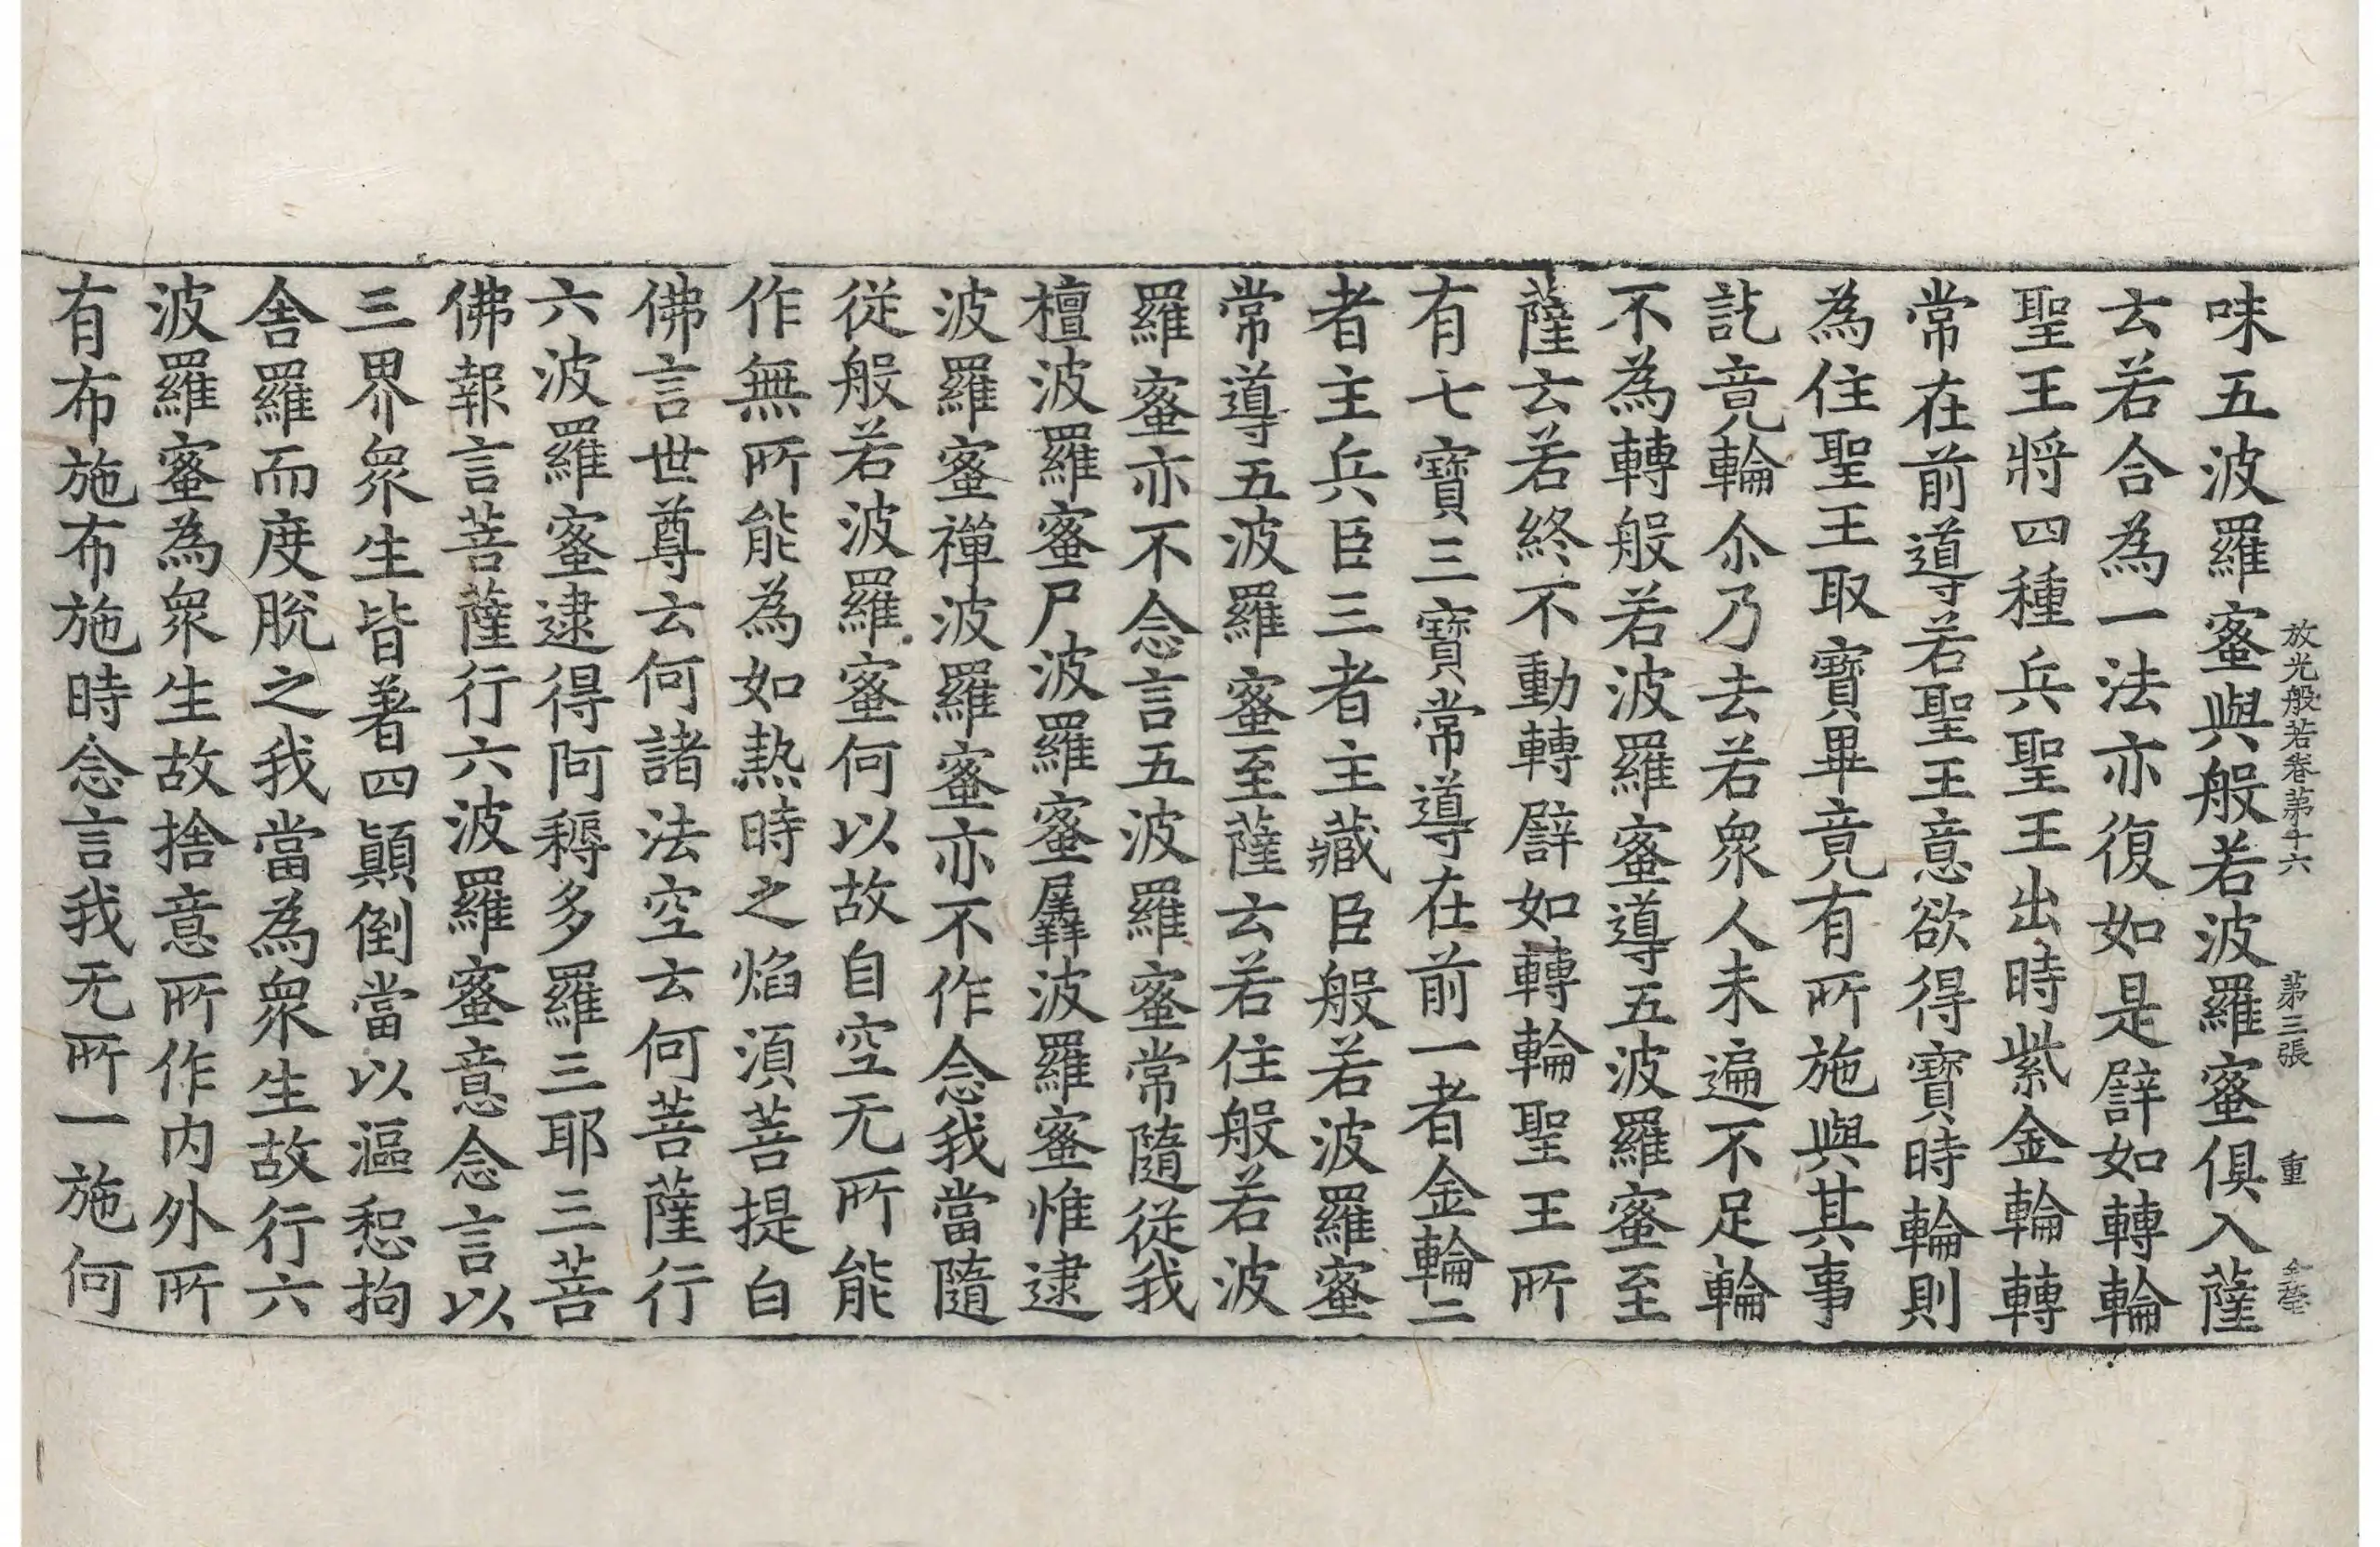 放光般若卷第十六　第三張　重
味五波羅蜜與般若波羅蜜俱入薩
云若合為一法亦復如是譬如轉輪
聖王將四種兵聖王出時紫金輪轉
常在前導若聖王意欲得寶時輪則
為住聖王取寶畢竟有所施與其事
訖竟輪尒乃去若衆人未遍不足輪
不為轉般若波羅蜜導五波羅蜜至
薩云若終不動轉譬如轉輪聖王所
有七寶三寶常導在前一者金輪二
者主兵臣三者主藏臣般若波羅蜜
常導五波羅蜜至薩云若住般若波
羅蜜亦不念言五波羅蜜常隨從我
檀波羅蜜尸波羅蜜羼波羅蜜惟逮
波羅蜜禪波羅蜜亦不作念我當隨
従般若波羅蜜何以故自空无所能
作無所能為如熱時之焰湏菩提白
佛言世尊云何諸法空云何菩薩行
六波羅蜜逮得阿耨多羅三耶三菩
佛報言菩薩行六波羅蜜意念言以
三界衆生皆著四顛倒當以漚惒拘
舍羅而度脫之我當為衆生故行六
波羅蜜為衆生故捨意所作內外所
有布施布施時念言我无所一施何